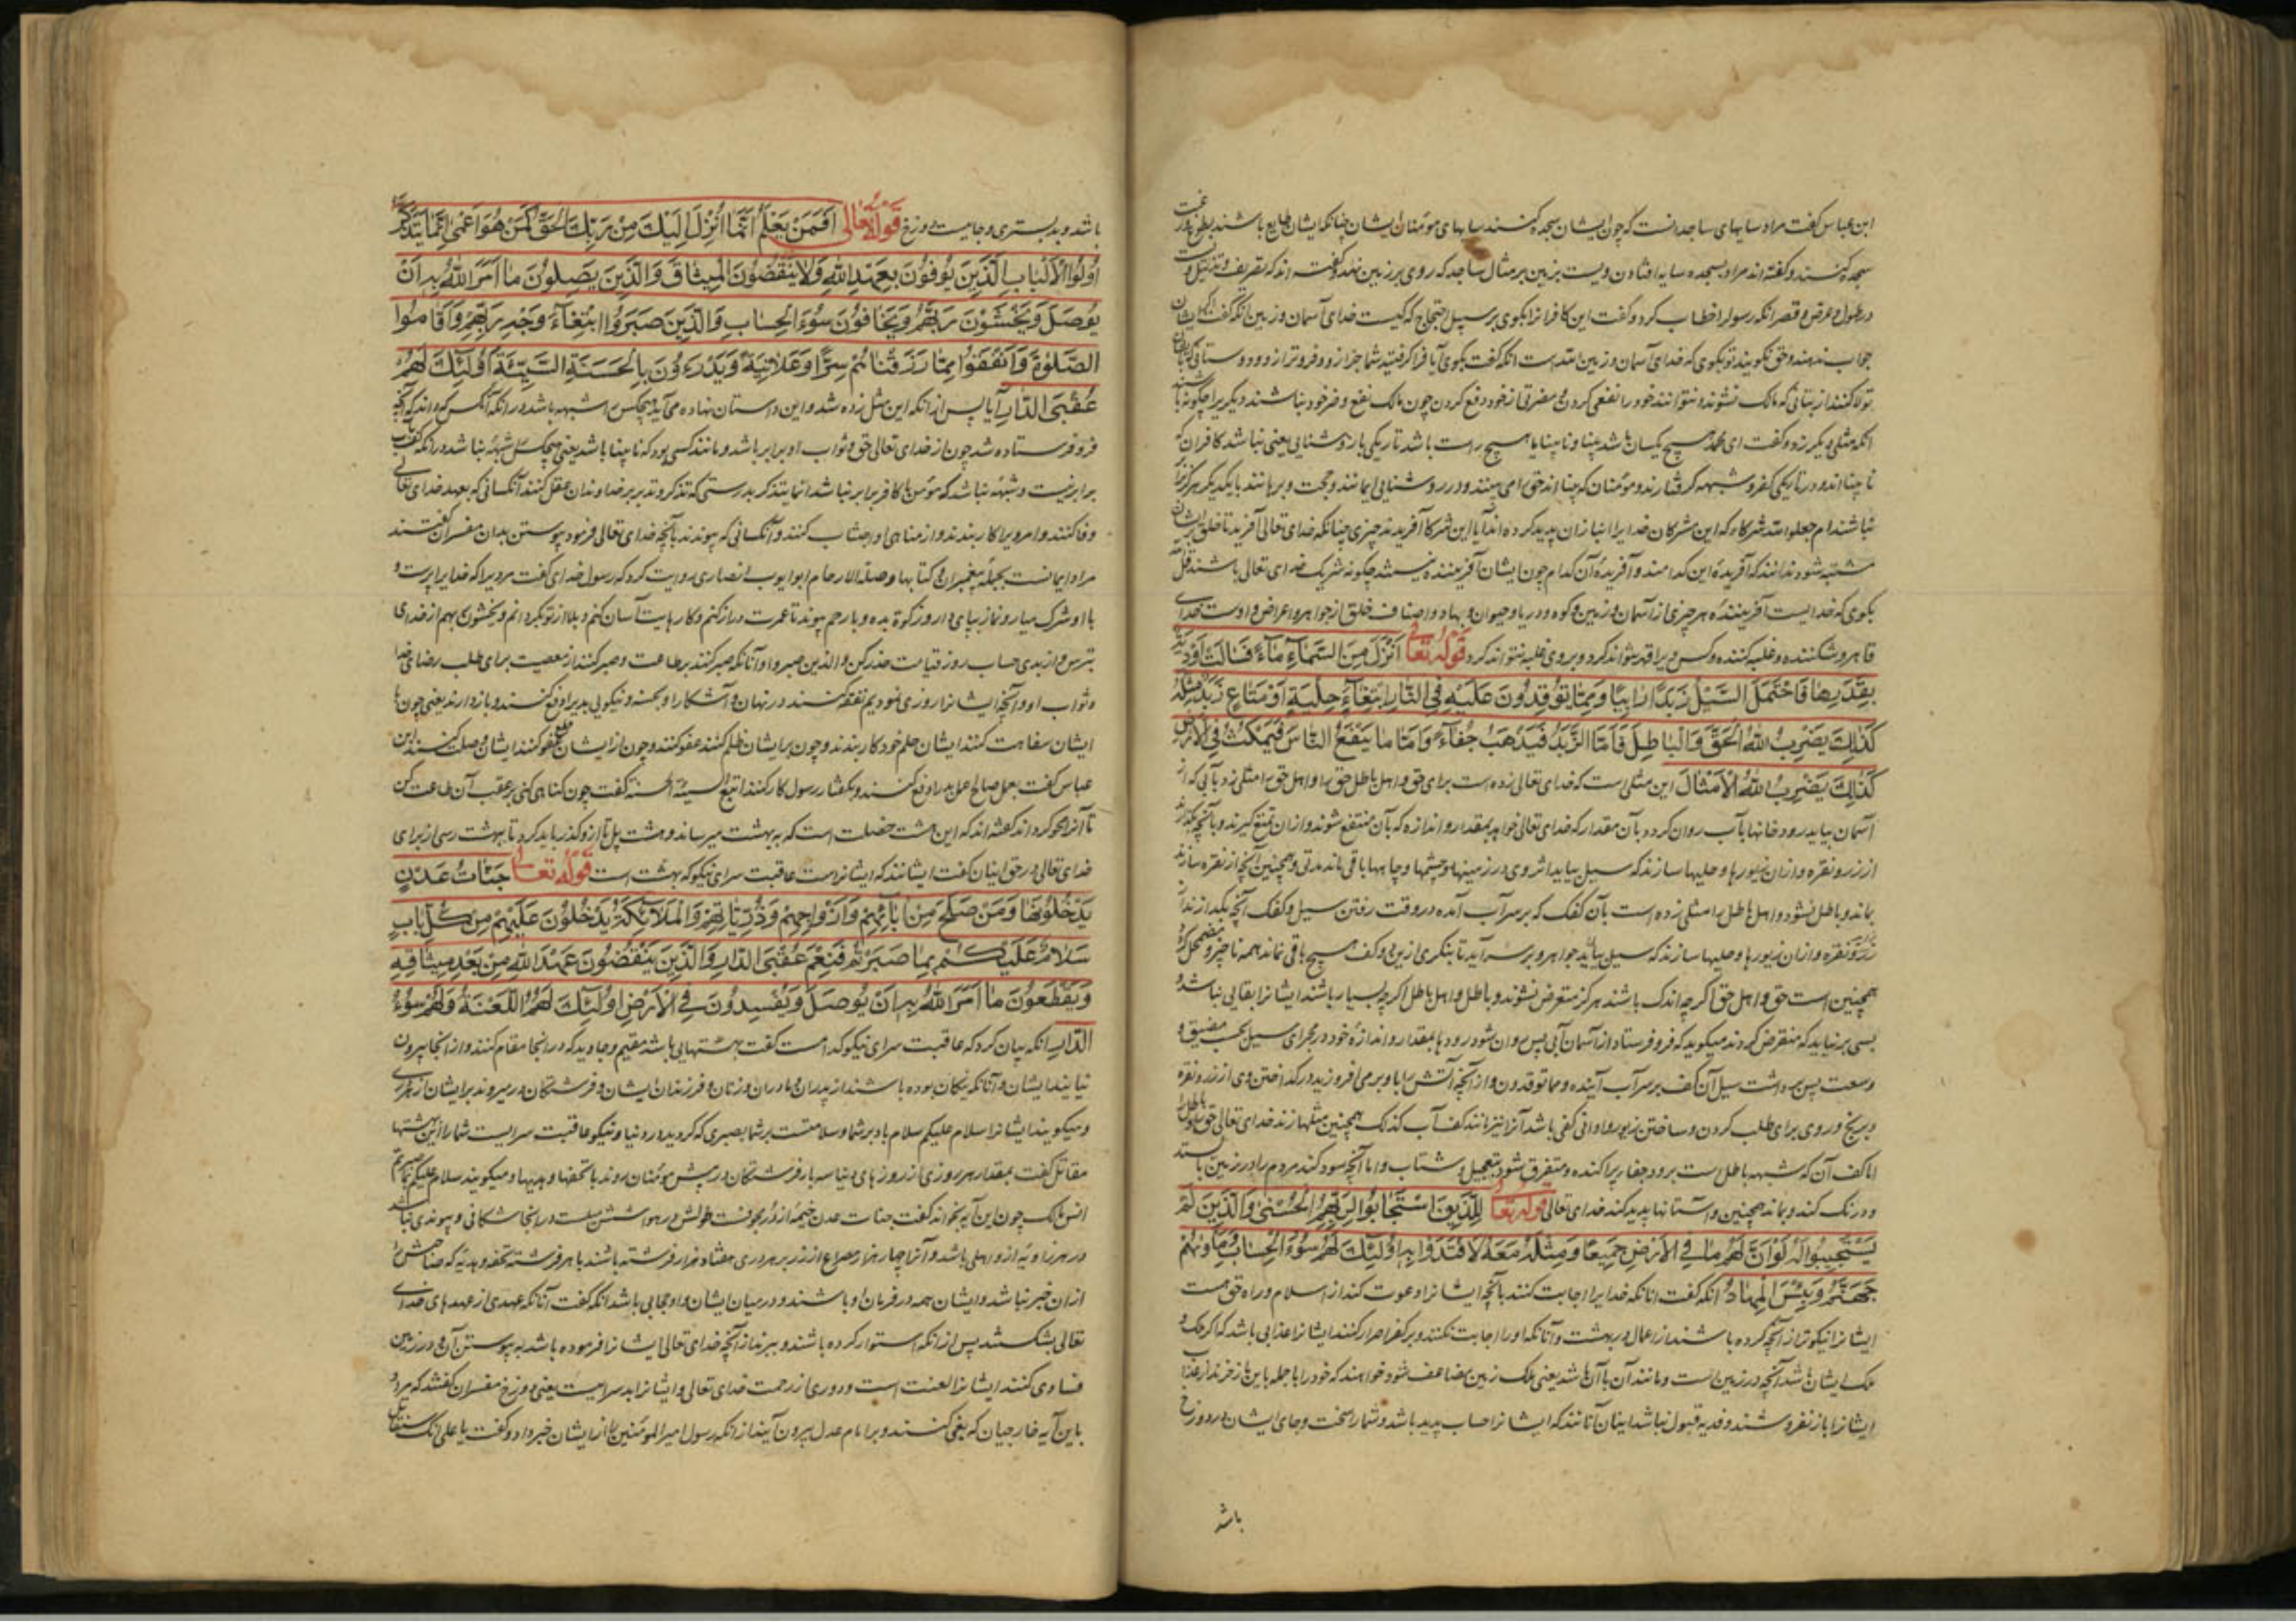 ابن عباس گفت مراد سایهای ساجد انست که چون ایشان سجده کنند سایهای مومنان ایشان چنانکه ایشان طایع باشند بطوع و رغبت
سجده کنند و گفته اند مراد بسجده سایه افتادن ویست بزمین بر مثال ساجد که روی بر زمین نهد و گفته اند که تصریف و تذلیل ویست
در طول و عرض و قصر انکه رسول را خطاب کرد و گفت این کافرانرا بگوی بر سبیل احتجاج که کیست خدای آسمان و زمین انکه گفت اگر ایشان
جواب ندهند و حق نگویند تو بگوی که خدای آسمان و زمین الله است انکه گفت بگوی آیا فرا گرفتید شما جز از و فروتر از و دوستانی
تولا کنند از بتانی که مالک نشوند و نتوانند خود را نفعی کردن و مضرتی از خود دفع کردن چون مالک نفع و ضر خود نباشند دیگریرا چگونه باشند
انکه مثلی دیگر زد و گفت ای محمد هیچ یکسان باشد بینا و نابینا یا هیچ راست باشد تاریکی با روشنایی یعنی نباشد کافران که
نابینا اند و در تاریکی کفر و شبهه گرفتارند و مومنان که بینا اند حق را می بینند و در روشنایی ایمانند و حجت و برهانند با یکدیگر هرگز برابر
نباشند ام جعلوا لله شرکاء که این مشرکان خدایرا انبازان پدید کرده اند آیا این شرکا آفریدند چیزی چنانکه خدای تعالی آفرید تا خلق بر ایشان
مشتبه شود ندانند که آفریدۀ این کدامند و آفریدۀ آن کدام چون ایشان آفریننده نیستند چگونه شریک خدای تعالی باشند قل
بگوی که خدایست آفرینندۀ هر چیزی از آسمان و زمین و کوه و دریا و حیوان و جماد و اصناف خلق از جواهر و اعراض و اوست خدای
قاهر و شکننده و غلبه کننده و کس ویرا قهر نتواند کرد و بر وی غلبه نتواند کرد قوله تعالی اَنْزَلَ مِنَ السَّمَاءِ مَاءً فَسَالَتْ اَوْدِیَةٌ
بِقَدَرِهَا فَاحْتَمَلَ السَّیْلُ زَبَدًا رَابِیًا وَمِمَّا تُوقِدُونَ عَلَیْهِ فِی النَّارِ ابْتِغَاءَ حِلْیَةٍ اَوْ مَتَاعٍ زَبَدٌ مِثْلُهُ
کَذٰلِکَ یَضْرِبُ اللهُ الْحَقَّ وَالْبَاطِلَ فَاَمَّا الزَّبَدُ فَیَذْهَبُ جُفَاءً وَاَمَّا مَا یَنْفَعُ النَّاسَ فَیَمْکُثُ فِی الْاَرْضِ
کَذٰلِکَ یَضْرِبُ اللهُ الْاَمْثَالَ این مثلی است که خدای تعالی زده است برای حق و اهل باطل حق را و اهل حق را مثلی زد بآبی که از
آسمان بیاید رودخانها بآب روان کردد بآن مقدار که خدای تعالی خواهد بمقدار و اندازه که بآن منتفع شوند و از ان تمتع گیرند و بآنچه بگدازند
از زر و نقره و از ان زیورها و حلیها سازند که سیل بیاید اثر وی در زمینها و چشمها و چاهها باقی ماند مدتی و همچنین آنچه از نقره سازند
بماند و باطل نشود و اهل باطل را مثلی زده است بآن کفک که بر سر آب آمده در وقت رفتن سیل و کفک آنچه بگدازند از
زر و نقره و از ان زیورها و حلیها سازند که سیل بیاید جواهر و بر سر آید تا بنگری از ین دو کف هیچ باقی نماند همه ناچیز و مضمحل گردد
همچنین است حق و اهل حق اگر چه اندک باشند هرگز متعرض نشوند و باطل و اهل باطل اگر چه بسیار باشند ایشانرا بقایی نباشد و
بسی بر نیاید که منقرض کردند میگوید که فرو فرستاد از آسمان آبی پس روان شود رودها بمقدار و اندازۀ خود در مجرای سیل بحسب مضیق و
وسعت پس برداشت سیل آن کف بر سر آب آینده و مما توقدون و از آنچه آتش را با و بر می افروزید در گداختن وی از زر و نقره
و برنج و روی برای طلب کردن و ساختن زیور و اوانی کفی باشد آنرا نیز مانند کف آب کذلک همچنین مثلها زند خدای تعالی حق و باطل را
اما کف آن که شبهه باطل است برود جفا پراکنده و متفرق شود بتعجیل و شتاب و اما آنچه سود کند مردم را در زمین باستد
و درنگ کند و بماند همچنین داستانها پدید کند خدای تعالی قوله تعالی لِلَّذِینَ اسْتَجَابُوا لِرَبِّهِمُ الْحُسْنٰی وَالَّذِینَ لَمْ
یَسْتَجِیبُوا لَهُ لَوْ اَنَّ لَهُمْ مَا فِی الْاَرْضِ جَمِیعًا وَمِثْلَهُ مَعَهُ لَافْتَدَوْا بِهِ اُولٰئِکَ لَهُمْ سُوءُ الْحِسَابِ وَمَاْوٰیهُمْ
جَهَنَّمُ وَبِئْسَ الْمِهَادُ انکه گفت انانکه خدایرا اجابت کنند بآنچه ایشانرا دعوت کند از اسلام و راه حق هست
ایشانرا نیکوتر از آنچه کرده باشند از اعمال در بهشت و آنانکه او را اجابت نکنند و بر کفر اصرار کنند ایشانرا عذابی باشد که اگر ملک و
ملک ایشان باشد آنچه در زمین است و مانند آن با آن باشد یعنی ملک زمین مضاعف شود خواهند که خود را بجمله باین باز خرند از عذاب
ایشانرا باز نفروشند و فدیه قبول نباشد اینان آنانند که ایشانرا حساب پدید باشد و شمار سخت و جای ایشان در دوزخ
باشد
باشد و بد بستری و جایست دوزخ قوله تعالی اَفَمَنْ یَعْلَمُ اَنَّمَا اُنْزِلَ اِلَیْکَ مِنْ رَبِّکَ الْحَقُّ کَمَنْ هُوَ اَعْمٰی اِنَّمَا یَتَذَکَّرُ
اُولُوا الْاَلْبَابِ الَّذِینَ یُوفُونَ بِعَهْدِ اللهِ وَلَا یَنْقُضُونَ الْمِیثَاقَ وَالَّذِینَ یَصِلُونَ مَا اَمَرَ اللهُ بِهِ اَنْ
یُوصَلَ وَیَخْشَوْنَ رَبَّهُمْ وَیَخَافُونَ سُوءَ الْحِسَابِ وَالَّذِینَ صَبَرُوا ابْتِغَاءَ وَجْهِ رَبِّهِمْ وَاَقَامُوا
الصَّلٰوةَ وَاَنْفَقُوا مِمَّا رَزَقْنَاهُمْ سِرًّا وَعَلَانِیَةً وَیَدْرَءُونَ بِالْحَسَنَةِ السَّیِّئَةَ اُولٰئِکَ لَهُمْ
عُقْبَی الدَّارِ آیا پس از انکه این مثل زده شد و این داستان نهاده می آید هیچکس را شبهه باشد در انکه آنکس که داند که آنچه
فرو فرستاده شد چون از خدای تعالی حق و ثواب او برابر باشد و مانند کسی بود که نابینا باشد یعنی هیچکس را شبهه نباشد در انکه
برابر نیست و شبهه نباشد که مومن با کافر برابر نباشد انما یتذکر بدرستی که تذکر و تدبر خداوندان عقل کنند آنکسانی که بعهد خدای تعالی
وفا کنند و امر ویرا کار بندند و از مناهی او اجتناب کنند و آنکسانی که پیوندند بآنچه خدای تعالی فرمود پیوستن بدان مفسران گفتند
مراد ایمانست بجملۀ پیغمبران و کتابها و صلة الارحام ابو ایوب انصاری روایت کرد که رسول خدای گفت مردیرا که خدایرا پرست و
با او شرک میار و نماز بپای دار و زکوة بده و با رحم پیوند تا عمرت دراز کنم و کارهایت آسان کنم و بلا از تو بگردانم و یخشون ربهم از خدای
بترس و از بدی حساب روز قیامت حذر کن والذین صبروا و آنانکه صبر کنند بر طاعت و صبر کنند از معصیت برای طلب رضای خدا
و ثواب او و آنچه ایشانرا روزی نمودیم نفقه کنند در نهان و آشکارا و بحسنه و نیکویی بدیرا دفع کنند و باز دارند یعنی چون با
ایشان سفاهت کنند ایشان حلم خود کار بندند و چون بر ایشان ظلم کنند عفو کنند و چون از ایشان قطع کنند ایشان وصلت کنند ابن
عباس گفت بعمل صالح عمل بد را دفع کنند و بگفتار رسول کار کنند اتبع السیئة الحسنة گفت چون گناهی کنی بر عقب آن طاعت کن
تا آنرا محو کرداند گفته اند که این هشت خصلت است که به بهشت میرساند و هشت پل تا از و گذر باید کرد تا ببهشت رسی از برای
خدای تعالی در حق اینان گفت ایشانند که ایشانراست عاقبت سرای نیکو که بهشت است قوله تعالی جَنَّاتُ عَدْنٍ
یَدْخُلُونَهَا وَمَنْ صَلَحَ مِنْ اٰبَائِهِمْ وَاَزْوَاجِهِمْ وَذُرِّیَّاتِهِمْ وَالْمَلَائِکَةُ یَدْخُلُونَ عَلَیْهِمْ مِنْ کُلِّ بَابٍ
سَلَامٌ عَلَیْکُمْ بِمَا صَبَرْتُمْ فَنِعْمَ عُقْبَی الدَّارِ وَالَّذِینَ یَنْقُضُونَ عَهْدَ اللهِ مِنْ بَعْدِ مِیثَاقِهِ
وَیَقْطَعُونَ مَا اَمَرَ اللهُ بِهِ اَنْ یُوصَلَ وَیُفْسِدُونَ فِی الْاَرْضِ اُولٰئِکَ لَهُمُ اللَّعْنَةُ وَلَهُمْ سُوءُ
الدَّارِ انکه بیان کرد که عاقبت سرای نیکو کدامست گفت بهشتهایی باشد مقیم و جاوید که در انجا مقام کنند و از انجا بیرون
نیایند ایشان و آنانکه نیکان بوده باشند از پدران و مادران و زنان و فرزندان ایشان و فرشتگان در میروند بر ایشان از هر دری
و میگویند ایشانرا سلام علیکم سلام باد بر شما و سلامتست بر شما بصبری که کردید در دنیا و نیکو عاقبت سرایست شما را این بهشتها
مقاتل گفت بمقدار هر روزی از روزهای دنیا سه بار فرشتگان در پیش مومنان روند با تحفها و هدیها و میگویند سلام علیکم بما صبرتم
انس مالک چون این آیه بخواند گفت جنات عدن خیمۀ از در مجوفست طولش در هوا شصت میلست در انجا شکافی و پیوندی نباشد
در هر زاویه از و اهلی باشد و آنرا چهار هزار مصراع از زر بر هر دری هفتاد هزار فرشته باشند با هر فرشته تحفه و هدیه که صاحبش را
از ان خبر نباشد و ایشان همه در فرمان او باشند و در میان ایشان و او حجابی باشد انکه گفت آنانکه عهدی از عهدهای خدای
تعالی بشکستند پس از انکه استوار کرده باشند و ببرند از آنچه خدای تعالی ایشانرا فرموده باشد به پیوستن آن و در زمین
فسادی کنند ایشانرا لعنت است و دوری از رحمت خدای تعالی و ایشانرا بد سراییست یعنی دوزخ مفسران گفتند که مراد
باین آیه خارجیان که بغی کنند و بر امام عدل بیرون آیند از انکه رسول امیر المومنین را از ایشان خبر داد و گفت یا علی انک ستقاتل